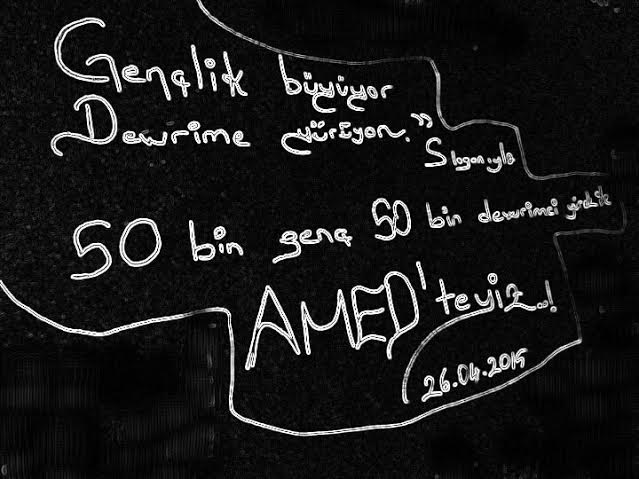 Gençlik büyüyor
Dewrime yürüyor."
Sloganıyla
50 bin genç 50 bin dewrimci yürekle
AMED'teyiz..!
26.04.2015